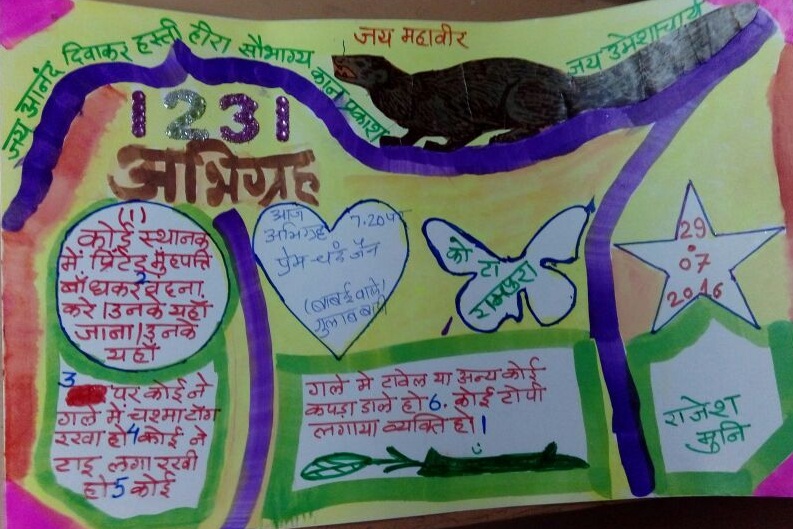 जय आनंद दिवाकर हस्ती हीरा सौभाग्य कान प्रकाश
जय महावीर
जय उमेशाचार्य
1231
अभिग्रह
(1)
कोई स्थानक
में प्रिंटेड मुंहपत्ति
बाँधकर 2 वंदना
करे। उनके यहाँ
जाना। उनके
यहाँ
3 पर कोई ने
गले में चश्मा टाँग
रखा हो 4 कोई ने
टाइ लगा रखी
हो 5 कोई
आज 7.20
अभिग्रह
प्रेमचंद जैन
(बाबई वाले)
गुलाब बाग
कोटा
रामपुरा
29
07
2016
गले मे टावेल या अन्य कोई
कपड़ा डाले हो 6. कोई टोपी
लगाया व्यक्ति हो।
राजेश
मुनि